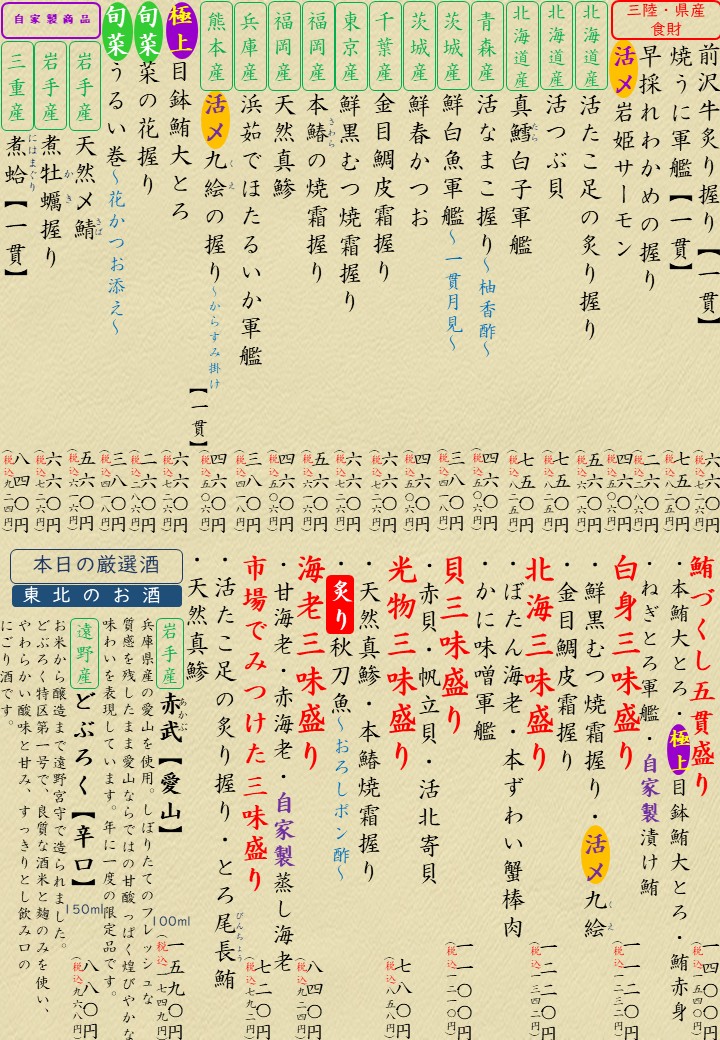 三陸・県産
食財
前沢牛炙り握り【一貫】
四六〇円
(税込五〇六円)
焼うに軍艦【一貫】
七五〇円
(税込八二五円)
早採れわかめの握り
二六〇円
(税込二八六円)
活〆岩姫サーモン
四六〇円
(税込五〇六円)
北海道産
活たこ足の炙り握り
五六〇円
(税込六一六円)
北海道産
活つぶ貝
七五〇円
(税込八二五円)
北海道産
真鱈白子軍艦
たら
七五〇円
(税込八二五円)
青森産
活なまこ握り〜柚香酢〜
四六〇円
(税込五〇六円)
茨城産
鮮白魚軍艦〜一貫月見〜
三八〇円
(税込四一八円)
茨城産
鮮春かつお
四六〇円
(税込五〇六円)
千葉産
金目鯛皮霜握り
六六〇円
(税込七二六円)
東京産
鮮黒むつ焼霜握り
六六〇円
(税込七二六円)
福岡産
本鰆の焼霜握り
さわら
五六〇円
(税込六一六円)
福岡産
天然真鯵
四六〇円
(税込五〇六円)
兵庫産
浜茹でほたるいか軍艦
三八〇円
(税込四一八円)
熊本産
活〆九絵の握り〜からすみ掛け
くえ
【一貫】
四六〇円
(税込五〇六円)
極上目鉢鮪大とろ
六六〇円
(税込七二六円)
旬菜菜の花握り
二六〇円
(税込二八六円)
旬菜うるい巻〜花かつお添え〜
三八〇円
(税込四一八円)
自家製商品
岩手産
天然〆鯖
さば
五六〇円
(税込六一六円)
岩手産
煮牡蠣握り
かき
六六〇円
(税込七二六円)
三重産
煮蛤【一貫】
にはまぐり
八四〇円
(税込九二四円)
鮪づくし五貫盛り
・本鮪大とろ・極上目鉢鮪大とろ・鮪赤身
・ねぎとろ軍艦・自家製漬け鮪
一四〇〇円
(税込一五四〇円)
白身三味盛り
・鮮黒むつ焼霜握り・活〆九絵
くえ
・金目鯛皮霜握り
一一二〇円
(税込一二三二円)
北海三味盛り
・ぼたん海老・本ずわい蟹棒肉
・かに味噌軍艦
一二二〇円
(税込一三四二円)
貝三味盛り
・赤貝・帆立貝・活北寄貝
一一〇〇円
(税込一二一〇円)
光物三味盛り
・天然真鯵・本鰆焼霜握り
・炙り秋刀魚〜おろしポン酢〜
七八〇円
(税込八五八円)
海老三味盛り
・甘海老・赤海老・自家製蒸し海老
八四〇円
(税込九二四円)
市場でみつけた三味盛り
・活たこ足の炙り握り・とろ尾長鮪
びんちょう
・天然真鯵
七二〇円
(税込七九二円)
本日の厳選酒
東北のお酒
岩手産
赤武【愛山】
あかぶ
100ml
一五九〇円
(税込一七四九円)
兵庫県産の愛山を使用。しぼりたてのフレッシュな
質感を残したまま愛山ならではの甘酸っぱく煌びやかな
味わいを表現しています。年に一度の限定品です。
遠野産
どぶろく【辛口】
150ml
八八〇円
(税込九六八円)
お米から醸造まで遠野宮守で造られました。
どぶろく特区第一号で、良質な酒米と麹のみを使い、
やわらかい酸味と甘み、すっきりとし飲み口の
にごり酒です。